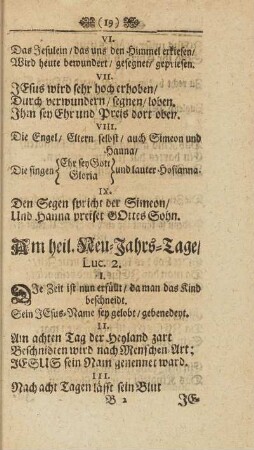 (19)
VI.
Das Jesulein/ das uns den Himmel erkiesen/
Wird heute bewundert/ gesegnet/ gepriesen.
VII.
JEsus wird sehr hoch erhoben/
Durch verwundern/ segnen/ loben.
Ihm sey Ehr und Preis dort oben.
VIII.
Die Engel/ Eltern selbst/ auch Simeon und
Hanna/
Die singen { Ehr sey Gott / Gloria } und lauter Hosianna.
IX.
Den Segen spricht der Simeon/
Und Hanna preiset GOttes Sohn.
Am heil. Neu-Jahrs-Tage/
Luc. 2.
I.
DIe Zeit ist nun erfüllt/ da man das Kind
beschneidt.
Sein JEsus-Name sey gelobt/ gebenedeyt.
II.
Am achten Tag der Heyland zart
Beschnidten wird nach Menschen Art;
JESUS sein Nam genennet ward.
III.
Nach acht Tagen lässt sein Blut
B 2 JE-